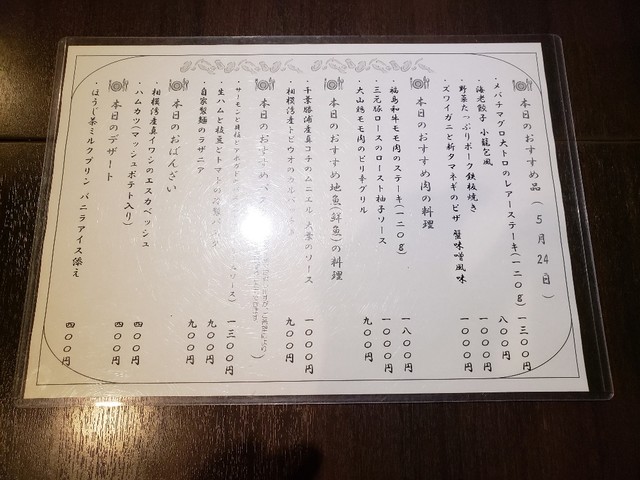 本日のおすすめ品(5月24日)
・メバチマグロ大トロのレアーステーキ(一二〇g) 一三〇〇円
・海老餃子 小龍包風 八〇〇円
・野菜たっぷりポーク鉄板焼き 一〇〇〇円
・ズワイガニと新タマネギのピザ 蟹味噌風味 一〇〇〇円
本日のおすすめ肉の料理
・福島和牛モモ肉のステーキ(一二〇g) 一八〇〇円
・三元豚ロースのロースト柚子ソース 一〇〇〇円
・大山鶏モモ肉のピリ辛グリル 九〇〇円
本日のおすすめ地魚(鮮魚)の料理
・千葉勝浦産真コチのムニエル大葉のソース 一〇〇〇円
・相模湾産トビウオのカルパッチョ 九〇〇円
本日のおすすめパスタ
ソース) 一三〇〇円
・生ハムと枝豆とトマトの冷製パスタ 九〇〇円
・自家製麺のラザニア 九〇〇円
本日のおばんざい
・相模湾産真イワシのエスカベッシュ 四〇〇円
・ハムカツ(マッシュポテト入り) 四〇〇円
本日のデザート
・ほうじ茶ミルクプリン バニラアイス添え 四〇〇円